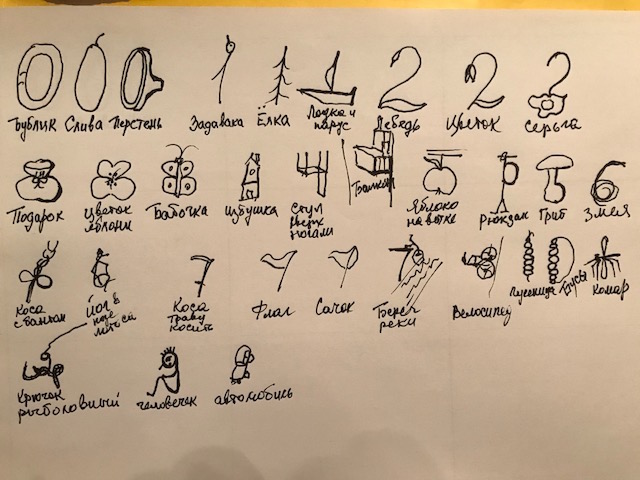 Бублик Слива Перстень Задавака Ёлка Лодка и парус Лебедь Цветок Серьга
Подарок Цветок яблони Бабочка избушка Стул вверх ногами Балкон Яблоко на ветке Рюкзак Гриб Змея
Коса с бантом Йог в Косa траву косить Флаг Сачок Берег реки Велосипед Гусеница Бусы Комар
Крючок рыболовный человечек автомобиль